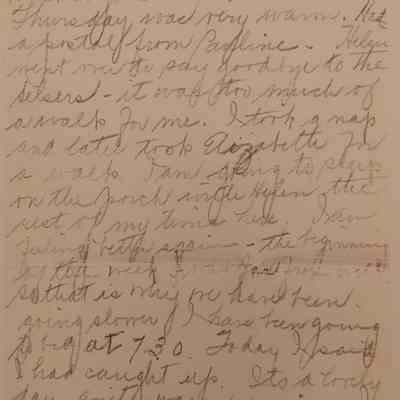 Thursday was very warm. Had
a postal from Pauline. Helen
went over to say goodbye to the
- it was too much of
a walk for me. I took a nap
and later took Elizabeth for
a walk. I am going to
on the porch with Helen the
rest of my time here. I am
feeling better again - the beginning
of the week I was
so that is why we have been
going slower. I have been going
to bed at 7.30. Today I said
I had caught up. Its a lovely
day